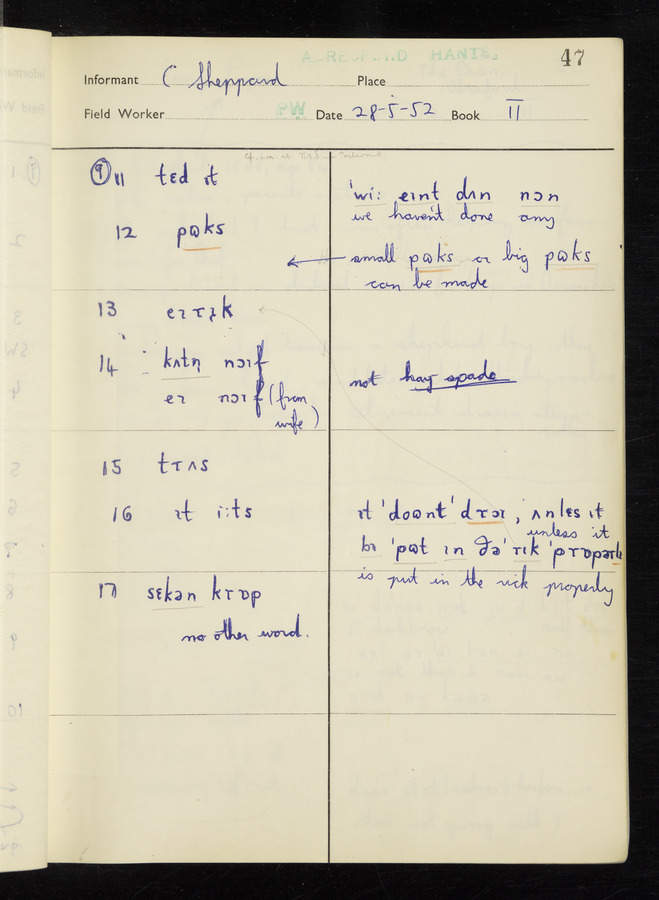 47
Informant C Sheppard Place
Field Worker PW Date 28-5-52 Book II
⑨ 11 tɛd ɪt
'wi: eɪnt dʌn nɔn
we haven't done any
12 pɷks
small pɷks or big pɷks
can be made
13 eɪɹɪk
14 kʌtn̩ nɔɪf
eɪ nɔɪf (from
wife)
not hay spade
15 tɹʌs
16 ɪt i:ts
ɪt 'doɷnt' dɹɔɪ, ʌnlɛs ɪt
unless it
bɪ 'pɷt ɪn ðə' rɪk 'prɒpəɹlɪ
is put in the rick properly
17 sɛkən krɒp
no other word.